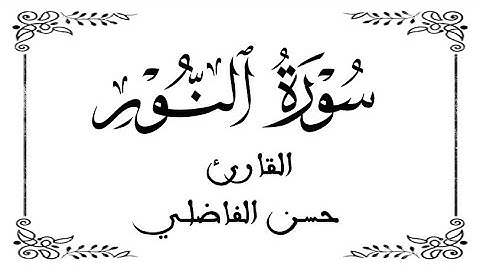 سُورَةُ ٱلنُّورِ
القارئ
حسن الفاضلي